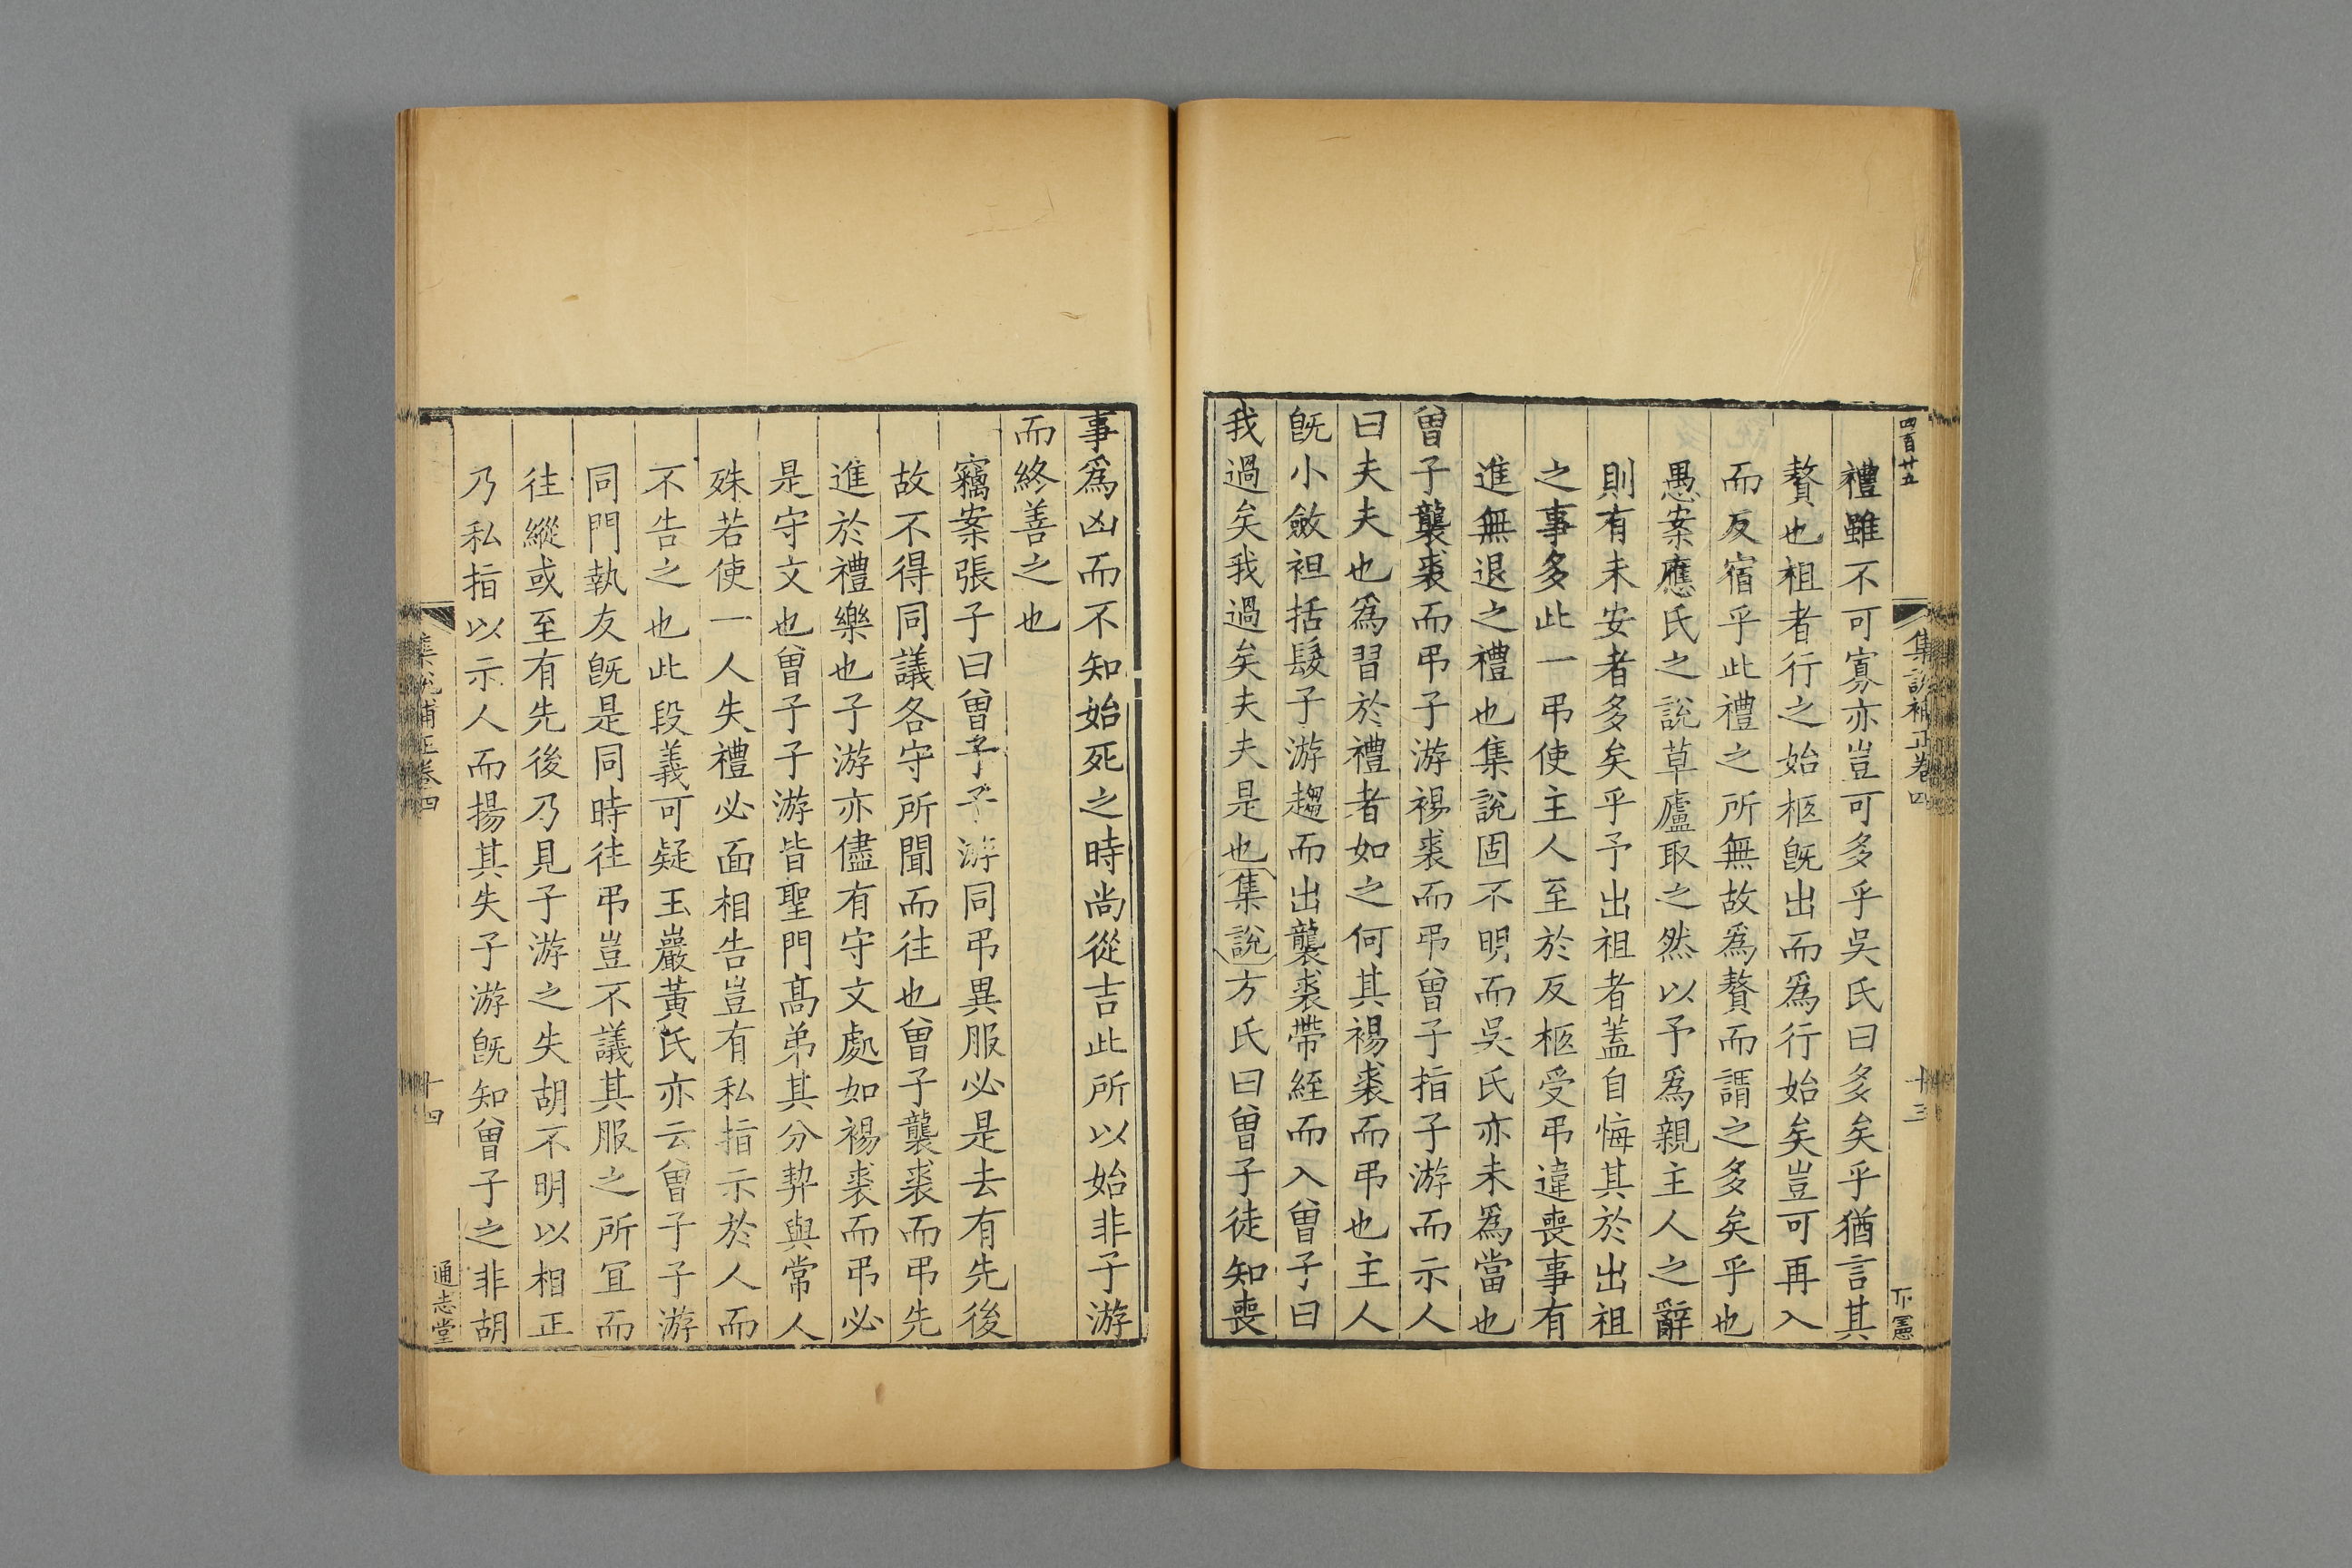 四百廿五
集說補正卷四
十三
禮雖不可寡亦豈可多乎吳氏曰多矣乎猶言其
贅也祖者行之始柩旣出而爲行始矣豈可再入
而反宿乎此禮之所無故爲贅而謂之多矣乎也
愚案應氏之說草廬取之然以予爲親主人之辭
則有未安者多矣乎予出祖者蓋自悔其於出祖
之事多此一弔使主人至於反柩受弔違喪事有
進無退之禮也集說固不明而吳氏亦未爲當也
曾子襲裘而弔子游裼裘而弔曾子指子游而示人
曰夫夫也爲習於禮者如之何其裼裘而弔也主人
旣小斂袒括髮子游趨而出襲裘帶絰而入曾子曰
我過矣我過矣夫夫是也集說方氏曰曾子徒知喪
事爲凶而不知始死之時尚從吉此所以始非子游
而終善之也
竊案張子曰曾子子游同弔異服必是去有先後
故不得同議各守所聞而往也曾子襲裘而弔先
進於禮樂也子游亦儘有守文處如裼裘而弔必
是守文也曾子子游皆聖門高弟其分契與常人
殊若使一人失禮必面相告豈有私指示於人而
不告之也此段義可疑玉巖黃氏亦云曾子子游
同門執友旣是同時往弔豈不議其服之所宜而
往縱或至有先後乃見子游之失胡不明以相正
乃私指以示人而揚其失子游旣知曾子之非胡
集說補正卷四
十四
通志堂